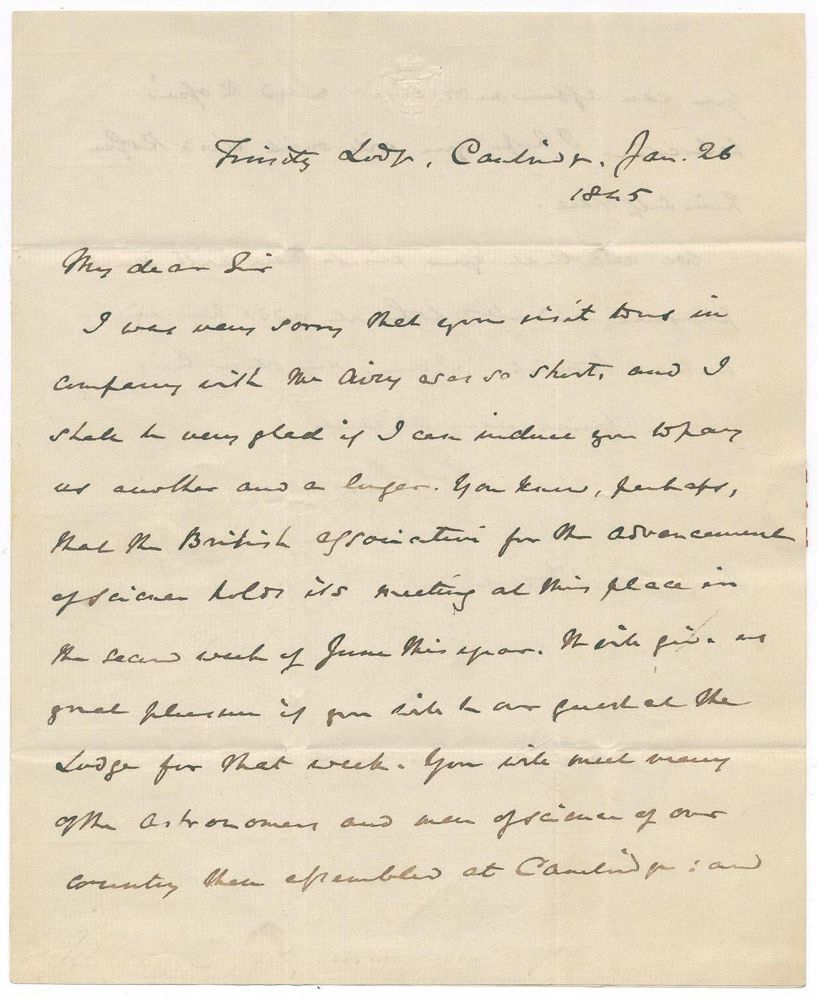 Trinity Lodge, Cambridge. Jan. 26
1845
My dear Sir
I was very sorry that your visit to us in
company with Mr Airy was so short, and I
shall be very glad if I can induce you to pay
us another and a longer. You know, perhaps,
that the British Association for the advancement
of science holds its meeting at this place in
the second week of June this year. It will give us
great pleasure if you will be our guest at the
Lodge for that week. You will meet many
of the astronomers and men of science of our
country then assembled at Cambridge: and